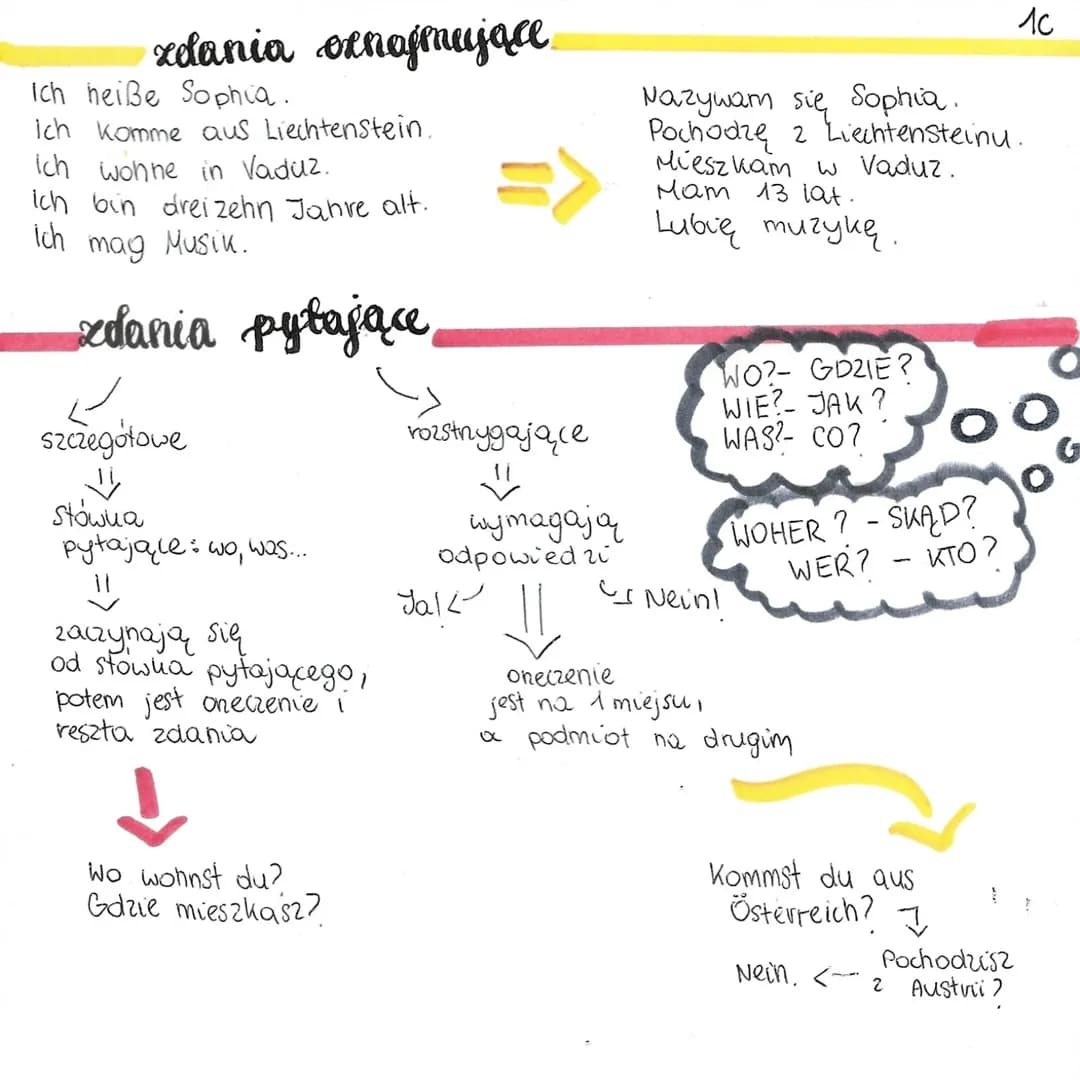 1C
zdania oznajmujące
Ich heiße Sophia.
Ich komme aus Liechtenstein.
Ich wohne in Vaduz.
Ich bin dreizehn Jahre alt.
Ich mag Musik.
Nazywam się Sophia.
Pochodzę z Liechtensteinu.
Mieszkam w Vaduz.
Mam 13 lat.
Lubię muzykę.
zdania pytające
szczegółowe
słówka
pytające: wo, was...
zaczynają się
od słówka pytającego,
potem jest orzeczenie i
reszta zdania
Wo wohnst du?
Gdzie mieszkasz?
rozstrzygające
wymagają
odpowiedzi
Ja!
Nein!
orzeczenie
jest na 1 miejsu,
a podmiot na drugim
WO?- GDZIE?
WIE?- JAK?
WAS?- CO?
WOHER? - SKĄD?
WER? - KTO?
Kommst du aus
Österreich?
Pochodzisz
z Austrii?
Nein.